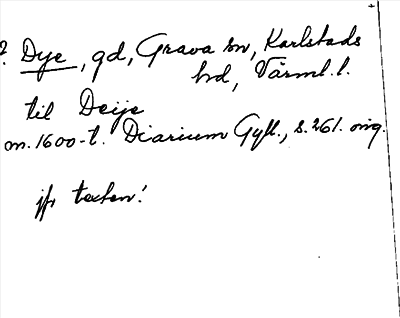 ?. Dye, gd, Grava sn, Karlstads
hd, Värml. l.
till Deije
m. 1600-t. Diarium Gyll., s. 261. orig.
jfr texten!